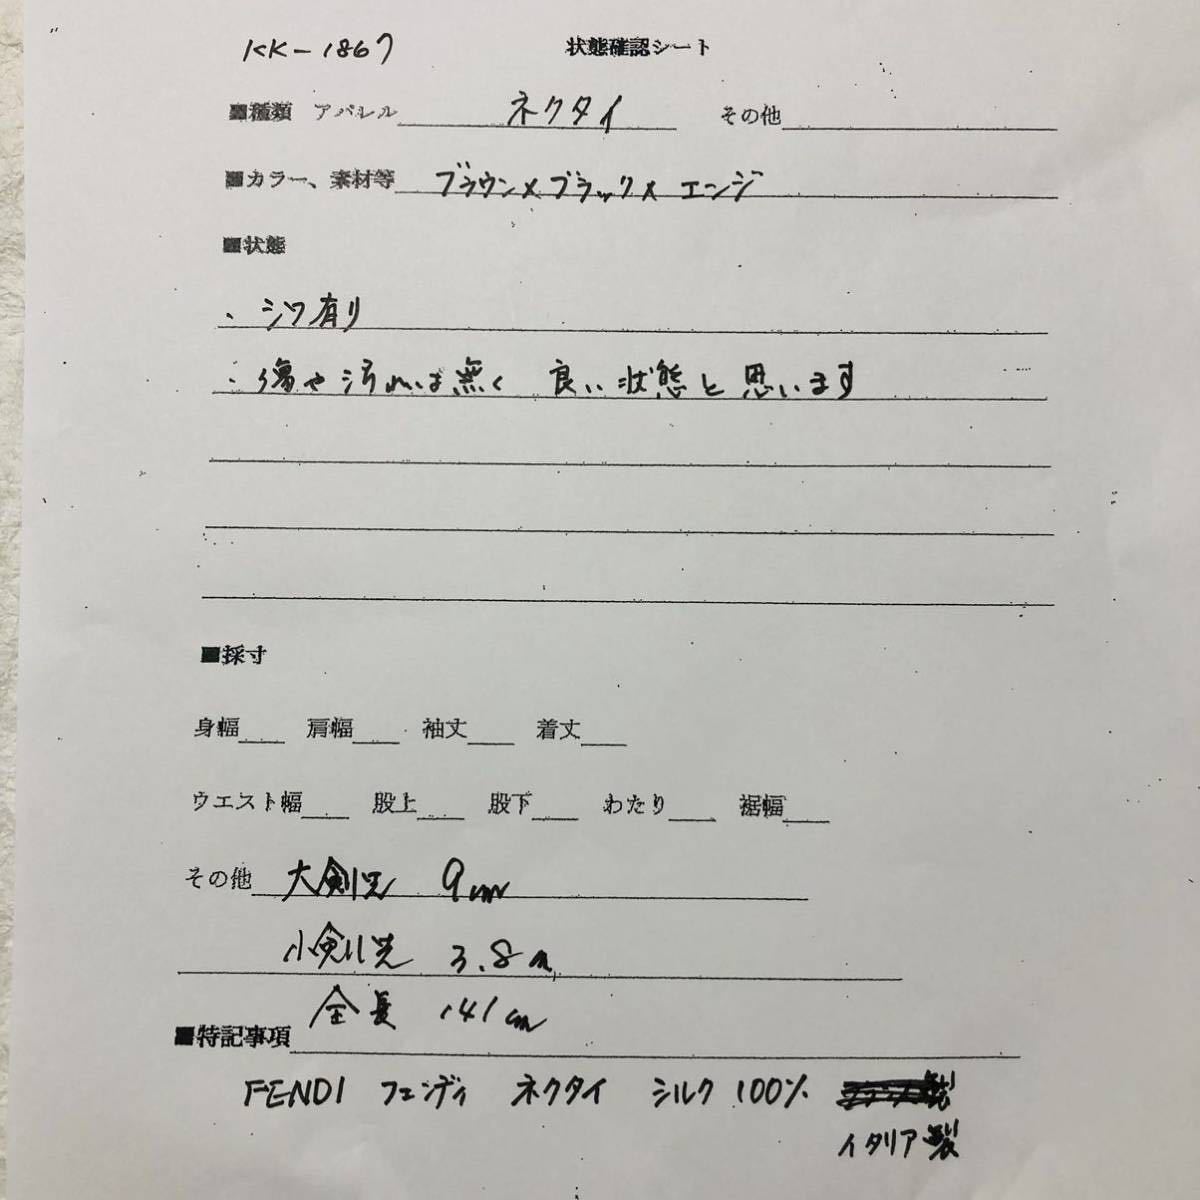 KK-1867 状態確認シート
■種類 アパレル ネクタイ その他
■カラー、素材等 ブラウン×ブラック×エンジ
■状態
・シワ有り
・傷や汚れは無く 良い状態と思います
■採寸
身幅 肩幅 袖丈 着丈
ウエスト幅 股上 股下 わたり 裾幅
その他 大剣先 9cm
小剣先 3.8cm
全長 141cm
■特記事項
FENDI フェンディ ネクタイ シルク 100%
イタリア製